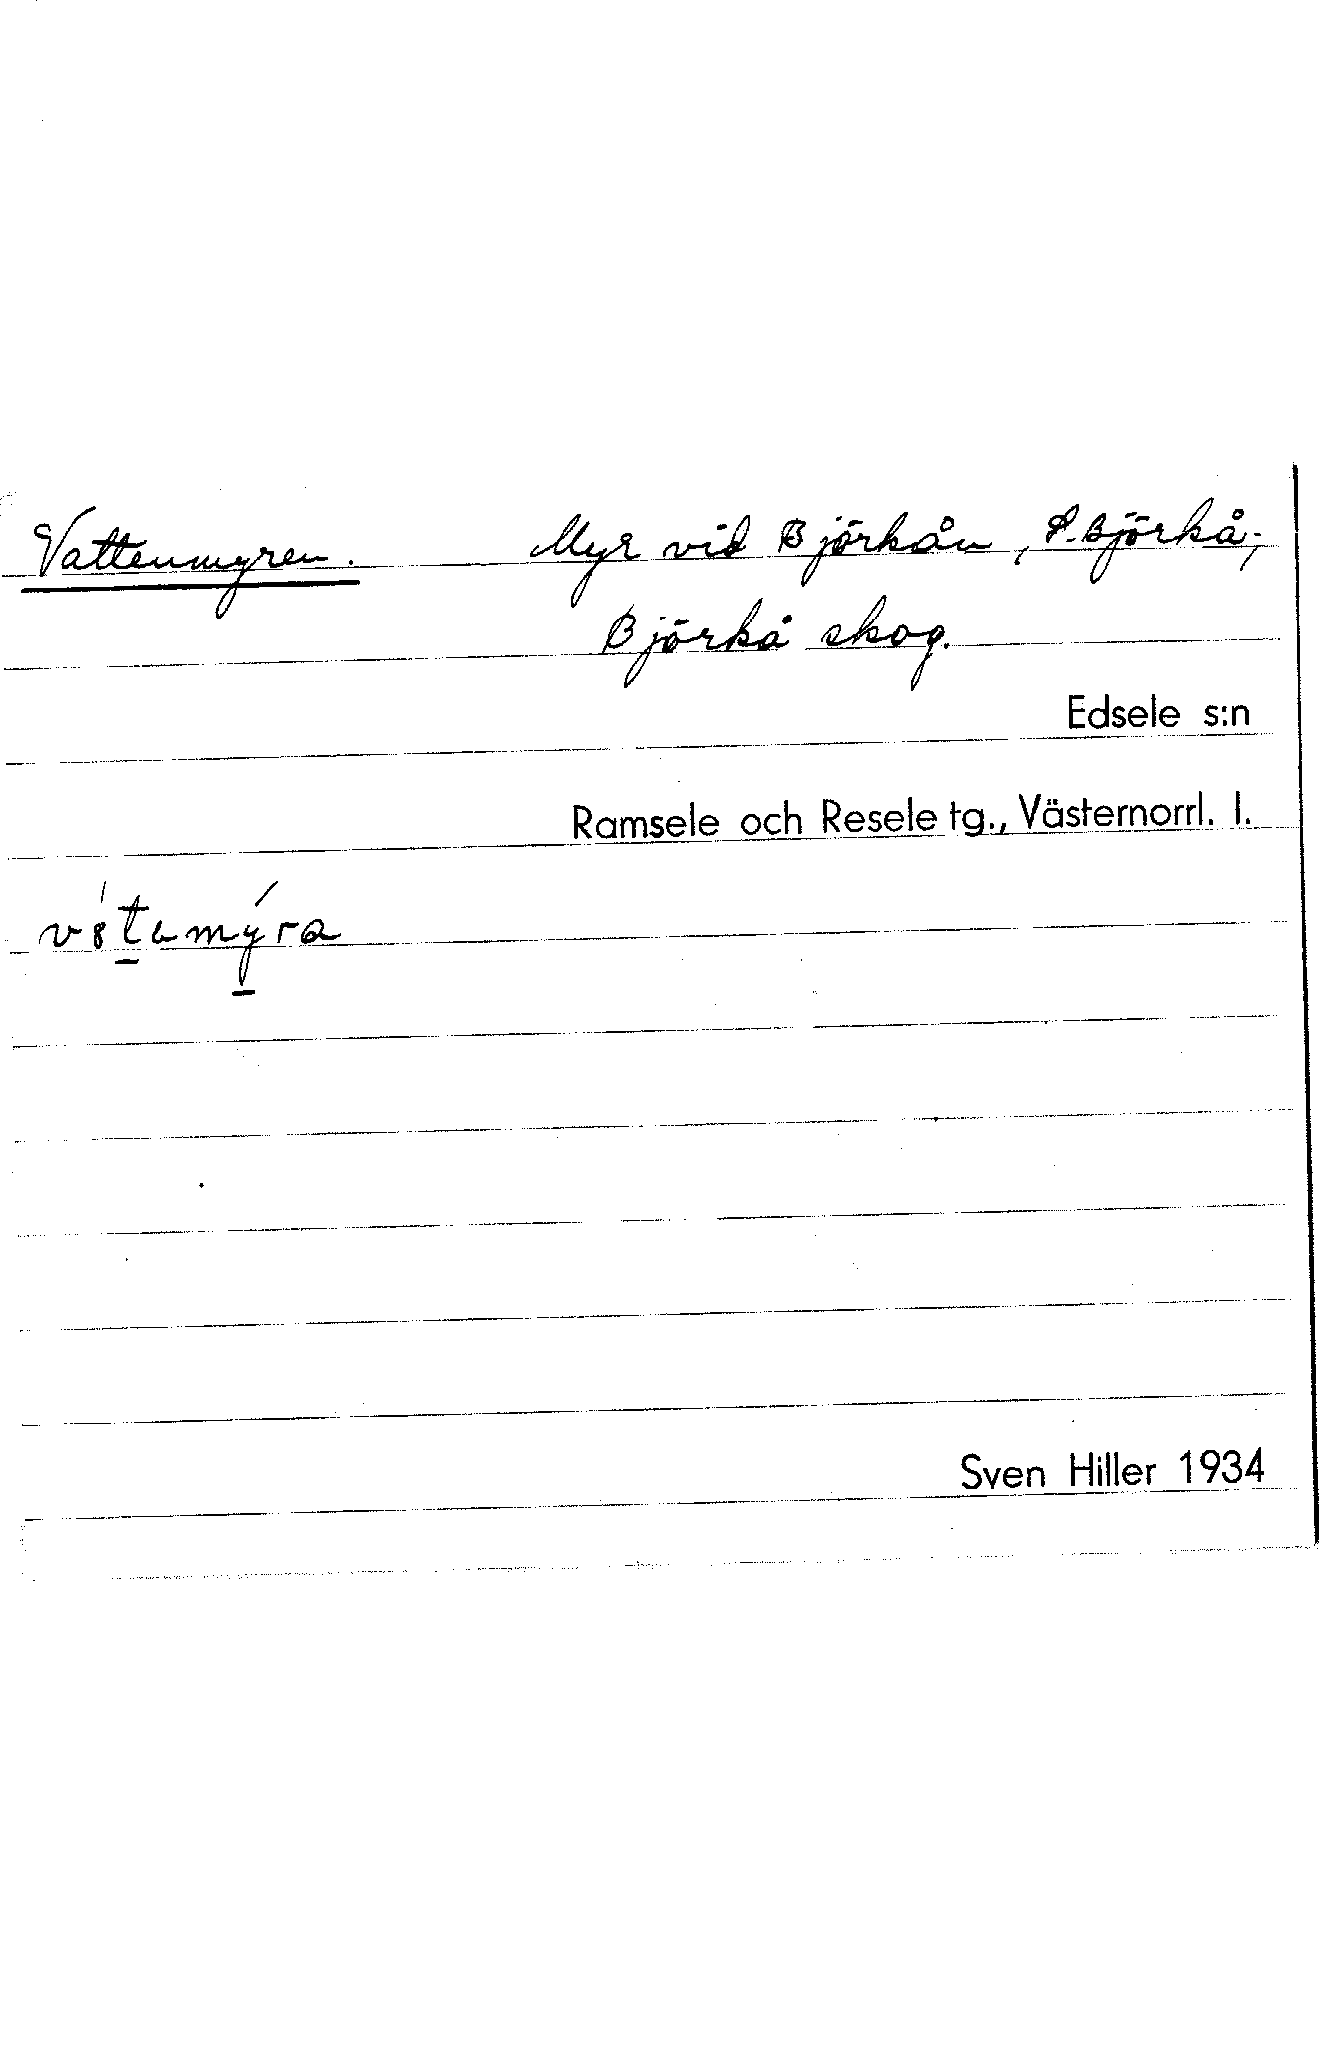 Vattenmyren. Myr vid Björkån, S. Björkå;
Björkå skog.
Edsele s:n
Ramsele och Resele tg., Västernorrl. l.
Sven Hiller 1934